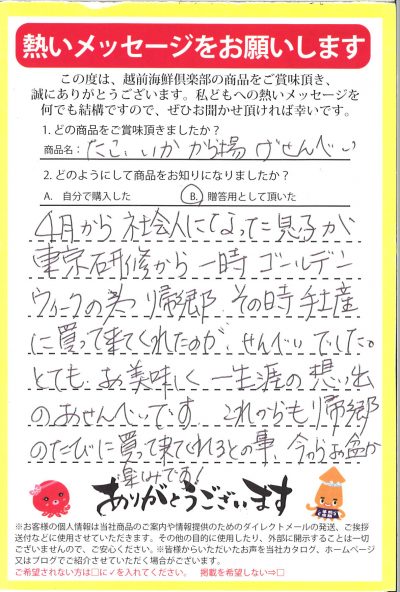 熱いメッセージをお願いします
この度は、越前海鮮倶楽部の商品をご賞味頂き、
誠にありがとうございます。私どもへの熱いメッセージを
何でも結構ですので、ぜひお聞かせ頂ければ幸いです。
1. どの商品をご賞味頂きましたか？
商品名： たこ、いか から揚げせんべい
2. どのようにして商品をお知りになりましたか？
A. 自分で購入した B. 贈答用として頂いた
4月から社会人になった息子が
東京研修から一時ゴールデン
ウィークの為帰郷、その時手土産
に買って来てくれたのが、せんべいでした。
とても、お美味しく一生涯の想い出
のおせんべいです。これからも帰郷
のたびに買って来てくれるとの事、今からお盆が
楽しみです！
ありがとうございます
※お客様の個人情報は当社商品のご案内や情報提供のためのダイレクトメールの発送、ご挨拶
送付などに使用させていただきます。その他の目的に使用したり、外部に開示することは一切
ございませんので、ご安心ください。※皆様からいただいたお声を当社カタログ、ホームページ
又はブログでご紹介させていただく場合がございます。
ご希望されない方は□に✓を入れてください。 掲載を希望しない⇒□